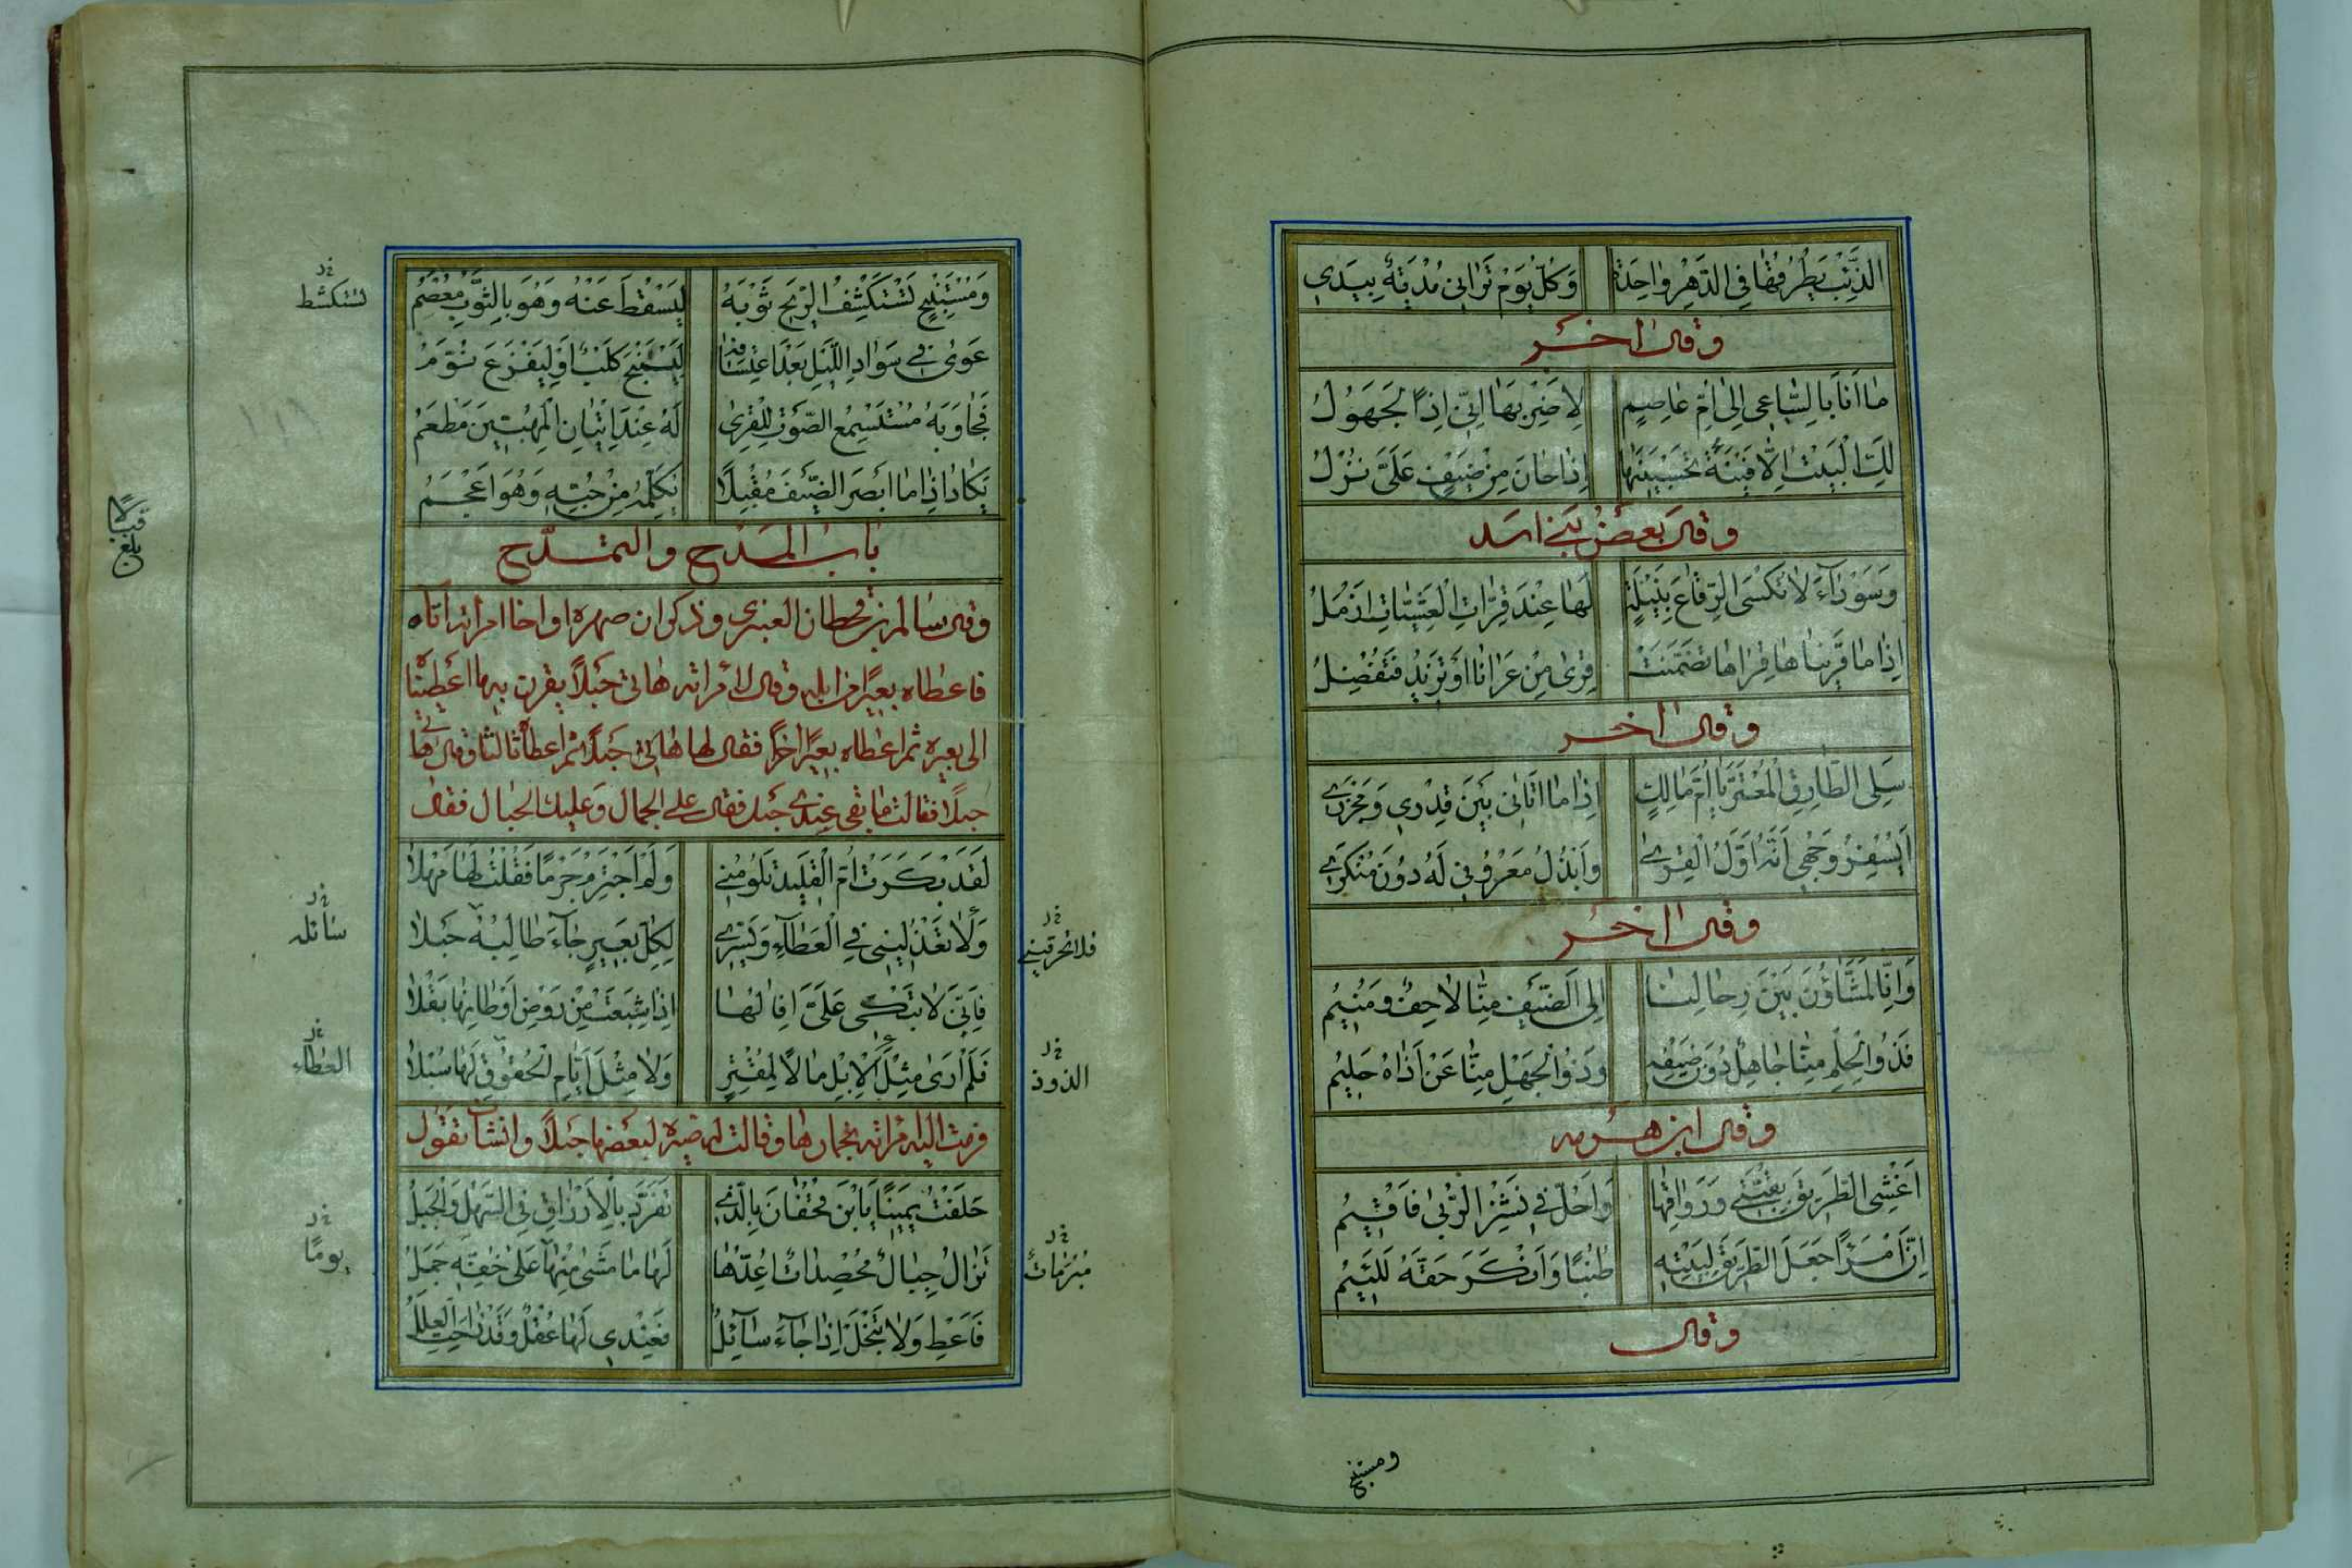 الذِّئْبُ يَطْرُقُهَا فِي الدَّهْرِ وَاحِدَةً وَكُلَّ يَوْمٍ تَرَانِي مُدْيَةٌ بِيَدِي
وقال اخر
مَا أَنَا بِالسَّاعِي إِلَى أُمِّ عَاصِمٍ لِأَضْرِبَهَا إِنِّي إِذًا لَجَهُولُ
لَكِ الْبَيْتُ إِلَّا فَيْنَةً تُحْسِنِينَهَا إِذَا حَانَ مِنْ ضَيْفٍ عَلَيَّ نُزُلُ
وقال بعض بني اسد
وَسَوْدَاءَ لَا تُكْسَى الرِّقَاعَ نَبِيلَةٍ لَهَا عِنْدَ قِرَّاتِ الْعَشِيَّاتِ ازْمَلُ
إِذَا مَا قَرَيْنَاهَا قِرَاهَا تَضَمَّنَتْ قِرَى مَنْ عَرَانَا أَوْ تَزِيدُ فَتُفْضِلُ
وقال اخر
سَلِي الطَّارِقَ الْمُعْتَرَّ يَا أُمَّ مَالِكٍ إِذَا مَا أَتَانِي بَيْنَ قِدْرِي وَمَجْزَرِي
أَيُسْفِرُ وَجْهِي أَنَّهُ أَوَّلُ الْقِرَى وَأَبْذُلُ مَعْرُوفِي لَهُ دُونَ مُنْكَرِي
وقال اخر
وَإِنَّا لَمَشَّاؤُنَ بَيْنَ رِحَالِنَا إِلَى الضَّيْفِ مِنَّا لَاحِفٌ وَمُنِيمُ
فَذُو الْحِلْمِ مِنَّا جَاهِلٌ دُونَ ضَيْفِهِ وَذُو الْجَهْلِ مِنَّا عَنْ أَذَاهُ حَلِيمُ
وقال ابن هرمه
أَغْشَى الطَّرِيقَ بِقُبَّتِي وَرِوَاقِهَا وَأَحُلُّ فِي نَشَزِ الرُّبَى فَأُقِيمُ
إِنَّ امْرَءًا جَعَلَ الطَّرِيقَ لِبَيْتِهِ طُنُبًا وَأَنْكَرَ حَقَّهُ لَلَئِيمُ
وقال
ومستنبح
وَمُسْتَنْبِحٍ تَسْتَكْشِفُ الرِّيحُ ثَوْبَهُ لِيَسْقُطَ عَنْهُ وَهُوَ بِالثَّوْبِ مُعْصِمُ
خ ر
تستكشط
عَوَى فِي سَوَادِ اللَّيْلِ بَعْدَ اعْتِسَافِهِ لِيَسْتَنْبِحَ كَلْبٌ أَوْ لِيَفْزَعَ نُوَّمُ
فَجَاوَبَهُ مُسْتَسْمِعُ الصَّوْتِ لِلْقِرَى لَهُ عِنْدَ إِتْيَانِ الْمُهِبِّينَ مَطْعَمُ
يَكَادُ إِذَا مَا أَبْصَرَ الضَّيْفَ مُقْبِلًا يُكَلِّمُهُ مِنْ حُبِّهِ وَهُوَ أَعْجَمُ
بلغ قبالا
باب المدح والتمدح
وقال سالم بن قحطان العنبري وذكر ان صهره او اخا امرأته اتاه
فاعطاه بعيرًا من ابله وقال لامرأته هاتى حبلًا يقرن به ما اعطيتنا
الى بعيره ثم اعطاه بعيرًا اخر فقال لها هاتى حبلًا ثم اعطاه ثالثا وقال هاتي
حبلًا فقالت ما بقى عندي حبل فقال على الجمال وعليك الحبال فقال
لَقَدْ بَكَرَتْ أُمُّ الْقَلِيدِ تَلُومُنِي وَلَمْ أَجْتَرِمْ جُرْمًا فَقُلْتُ لَهَا مَهْلًا
وَلَا تَعْذُلِينِي فِي الْعَطَاءِ وَيَسِّرِي لِكُلِّ بَعِيرٍ جَاءَ طَالِبُهُ حَبْلًا
خ ر
سائله
خ ر
فلا تحرقيني
فَإِنِّي لَا تَبْكِي عَلَيَّ إِفَالُهَا إِذَا شَبِعَتْ مِنْ رَوْضِ أَوْطَانِهَا بَقْلًا
فَلَمْ أَرَى مِثْلَ الْإِبِلِ مَالًا لِمُقْتِرٍ وَلَا مِثْلَ أَيَّامِ الْحُقُوقِ لَهَا سُبْلًا
خ ر
العطاء
خ ر
الذود
فرمت اليه امراته بخمارها وقالت صيره لبعضها حبلًا وانشات تقول
حَلَفْتُ يَمِينًا يَابْنَ قُحْفَانَ بِالَّذِي تَفَرَّدَ بِالْأَرْزَاقِ فِي السَّهْلِ وَالْجَبَلْ
تَزَالُ حِبَالٌ مُحْصَدَاتٌ أُعِدُّهَا لَهَا مَا مَشَى مِنْهَا عَلَى خُفِّهِ جَمَلْ
خ ر
يومًا
خ ر
مبرمات
فَأَعْطِ وَلَا تَبْخَلْ إِذَا جَاءَ سَائِلٌ فَعِنْدِي لَهَا عُقْلٌ وَقَدْ زَاحَتِ الْعِلَلُ